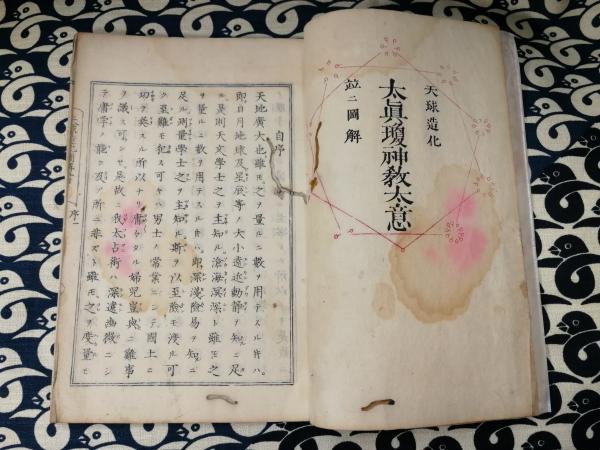 天球造化
太眞瓊神教太意
並ニ圖解
自序
天地廣大也雖モ之ヲ量ルニ數ヲ用テスル片ハ
卽日月地球及星辰等ノ大小遠近動靜ヲ知ニ足
ル是則天文學士之ヲ主知ル滄海溟深ト雖モ之
ヲ量ルニ數ヲ用テスル片ハ卽深淺險易ヲ知ニ
足ル測量學士之ヲ主知ル斯ヲ以至險モ渡ル可
ク至難モ犯ス可キハ男士ノ常業ニシテ國土ニ
功ヲ奏スル所以ナリ
ヲ議ス可シヤ是故ニ我太占術ハ深遠幽微ニシ
テ庸學ノ能ク及ブ所ニ非スト雖モ之ヲ度量モ
序一